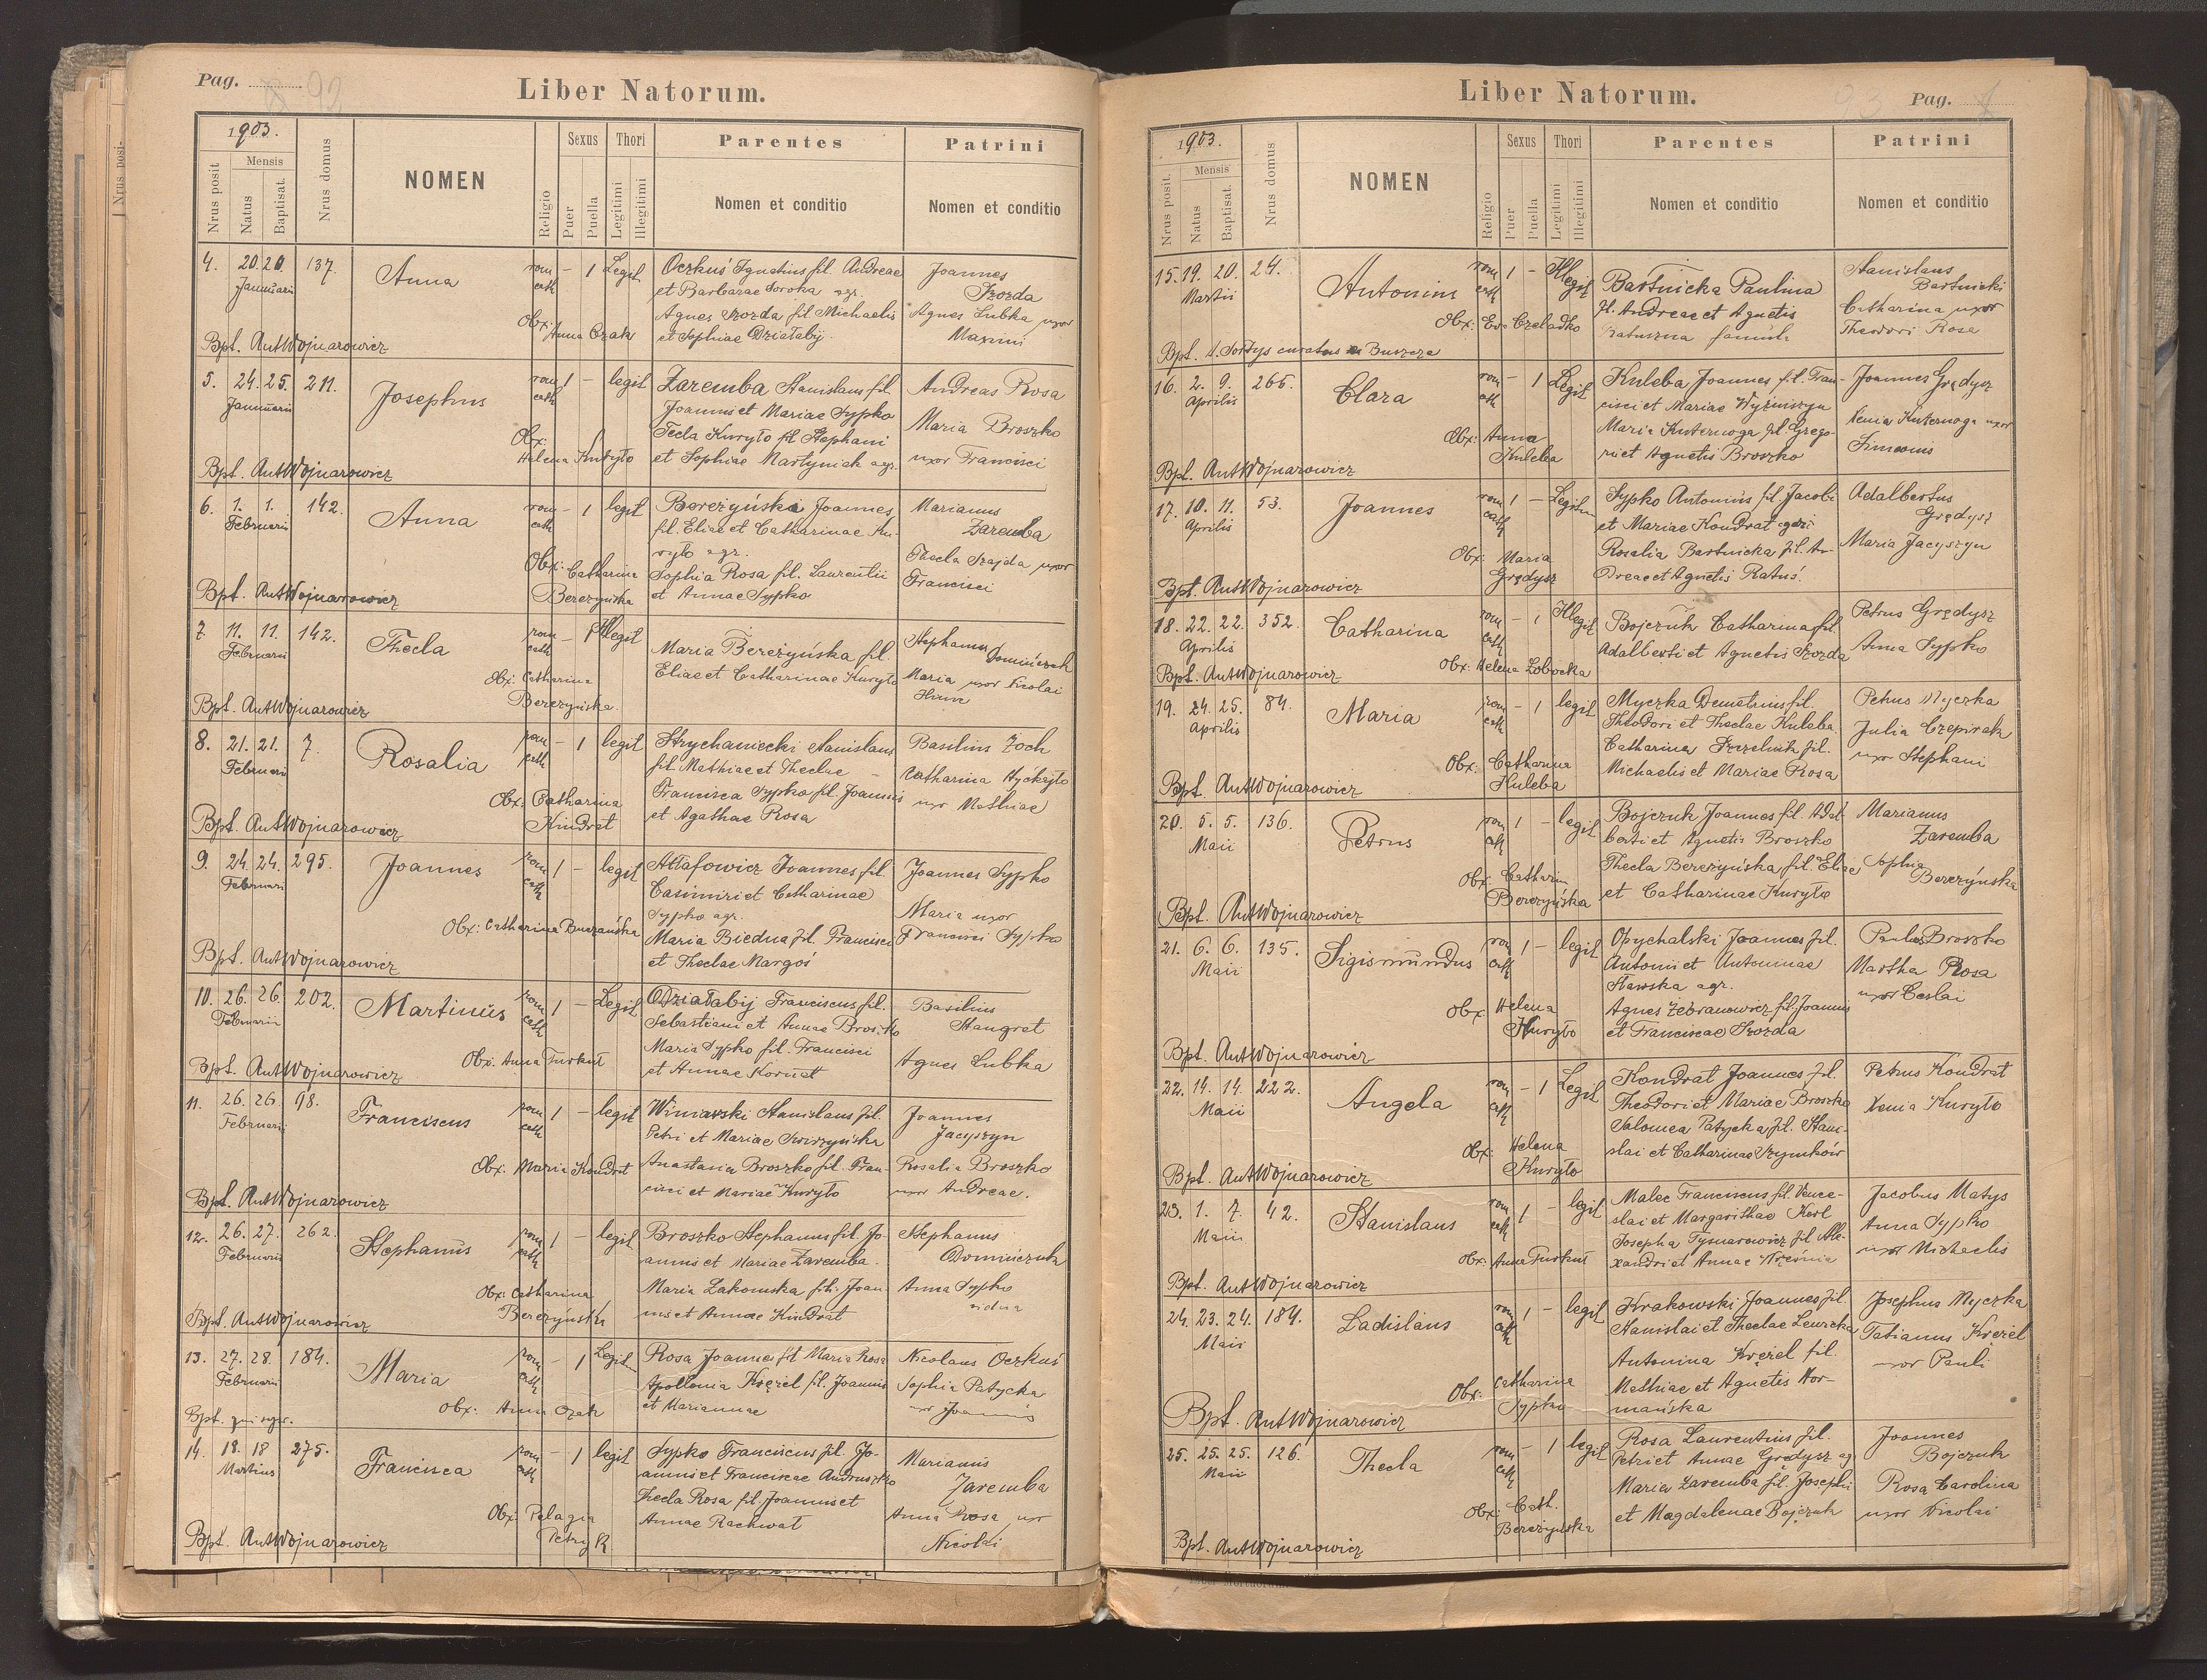 Pag. 92
Liber Natorum.
1903.
Nrus posit
Mensis
Natus
Baptisat.
Nrus domus
NOMEN
Religio
Sexus
Puer
Puella
Thori
Legitimi
Illegitimi
Parentes
Nomen et conditio
Patrini
Nomen et conditio
4. 20. 20. 137.
Januarii
Anna
rom cath – 1 Legit
Oczkuś Ignatius fil. Andreae
et Barbarae Soroka agr.
Agnes Szozda fil Michaelis
et Sophiae Działabij.
Joannes
Szozda
Agnes Lubka uxor
Maximi
Obx: Anna Czak
Bpt. AntWojnarowicz
5. 24. 25. 211.
Januarii
Josephus
rom cath 1 – legit
Zaremba Stanislaus fil.
Joannis et Mariae Sypko
Tecla Kuryło fil Stephani
et Sophiae Martyniak agr.
Andreas Rosa
Maria Broszko
uxor Francisci
Obx:
Helena Kuryło
Bpt. AntWojnarowicz
6. 1. 1. 142.
Februarii
Anna
rom cath – 1 legit
Berezyński Joannes
fil. Eliae et Catharinae Ku-
ryło agr.
Sophia Rosa fil. Laurentii
et Annae Sypko
Marianus
Zaremba
Thecla Szajda uxor
Francisci
Obx: Catharina
Berezyńska
Bpt. AntWojnarowicz
7. 11. 11. 142.
Februarii
Thecla
rom cath – 1 Illegit
Maria Berezyńska fil.
Eliae et Catharinae Kuryło
Stephanus Dominiczak
Maria uxor Nicolai
Obx: Catharina
Berezyńska.
Bpt. AntWojnarowicz
8. 21. 21. 7.
Februarii
Rosalia
rom cath – 1 legit
Strychaniecki Stanislaus
fil. Mathiae et Theclae –
Francisca Sypko fil. Joannis
et Agathae Rosa
Basilius Zoch
Catharina
uxr Mathiae
Obx: Catharina
Kindrat
Bpt. AntWojnarowicz
9. 24. 24. 295.
Februarii
Joannes
rom cath 1 – legit
Attafowicz Joannes fil.
Casimiri et Catharinae
Sypko agr.
Maria Biedna fil. Francisci
et Theclae Margoś
Joannes Sypko
Maria uxor
Francisci Sypko
Obx: Catharina Buczańska
Bpt. AntWojnarowicz
10. 26. 26. 202.
Februarii
Martinus
rom cath 1 – Legit
Działabij Franciscus fil.
Sebastiani et Annae Broszko
Maria Sypko fil. Francisci
et Annae Kornet
Basilius
Stangret
Agnes Lubka
Obx. Anna Turkut
Bpt. AntWojnarowicz
11. 26. 26. 98.
Februarii
Franciscus
rom cath 1 – legit
Winiarski Stanislaus fil.
Petri et Mariae Swirzyńska
Anastasia Broszko fil. Fran-
cisci et Mariae Kuryło
Joannes
Jacyszyn
Rosalia Broszko
uxor Andreae.
Obx. Maria Kondrat
Bpt. AntWojnarowicz
12. 26. 27. 262.
Februarii
Stephanus
rom cath 1 – legit
Broszko Stephanus fil. Jo-
annis et Mariae Zaremba.
Maria Lakomska fil. Joan-
nis et Annae Kindrat
Stephanus
Dominiczak
Anna Sypko
vidua
Obx: Catharina
Berezyńska
Bpt. AntWojnarowicz
13. 27. 28. 184.
Februarii
Maria
rom cath – 1 Legit
Rosa Joannes fil Maria Rosa
Apollonia Kręzel fil. Joannis
et Mariannae
Nicolaus Oczkuś
Sophia Patycka
uxr Joannis
Obx: Anna Czak
Bpt. qui supr.
14. 18. 18 275.
Martius
Francisca
rom cath – 1 legit
Sypko Franciscus fil. Jo-
annis et Franciscae Andruszko
Thecla Rosa fil. Joannis et
Annae Rachwał
Marianus
Zaremba
Anna Rosa uxr
Nicolai
Obx. Pelagia
Petryk
Bpt. AntWojnarowicz
Liber Natorum.
93 Pag.
1903.
Nrus posit.
Mensis
Natus
Baptisat.
Nrus domus
NOMEN
Religio
Sexus
Puer
Puella
Thori
Legitimi
Illegitimi
Parentes
Nomen et conditio
Patrini
Nomen et conditio
15. 19. 20. 24.
Martii
Antonius
rom cath 1 – Illegit
Bartnicka Paulina
fil. Andreae et Agnetis
Ratuszna famula
Stanislaus
Bartnicki
Catharina uxor
Theodori Rosa
Obx: Eva Czeladko
Bpt. A. Sołtys curatus in Buszcze
16. 2. 9. 266.
Aprilis
Clara
rom cath – 1 Legit
Kuleba Joannes fil. Fran-
cisci et Mariae Wyżniszyn
Maria Kuternoga fil. Grego-
rii et Agnetis Broszko
Joannes Grędysz
Xenia Kuternoga uxor
Simeonis
Obx: Anna
Kuleba
Bpt. AntWojnarowicz
17. 10. 11. 53.
Aprilis
Joannes
rom cath 1 – Legitim
Sypko Antonius fil. Jacobi
et Mariae Kondrat agri
Rosalia Bartnicka fil. An-
dreae et Agnetis Ratuś.
Adalbertus
Grędysz
Maria Jacyszyn
Obx: Maria
Grędysz
Bpt. AntWojnarowicz
18. 22. 22. 352.
Aprilis
Catharina
rom cath – 1 Illegit
Bojczuk Catharina fil.
Adalberti et Agnetis Szozda
Petrus Grędysz
Anna Sypko
Obx: Helena Łobocka
Bpt. AntWojnarowicz
19. 24. 25. 84.
Aprilis
Maria
rom cath – 1 legit
Myczka Demetrius fil.
Theodori et Theclae Kuleba.
Catharina Strzelnik fil.
Michaelis et Mariae Rosa
Petrus Myczka
Julia Czepirak
uxor Stephani
Obx: Catharina
Kuleba
Bpt. AntWojnarowicz
20. 5. 5. 136.
Maii
Petrus
rom cath 1 – legit
Bojczuk Joannes fil. Adal
berti et Agnetis Broszko
Thecla Berezyńska fil. Eliae
et Catharinae Kuryło
Marianus
Zaremba
Sophia
Berezyńska
Obx: Catharin
Berezyńska
Bpt. AntWojnarowicz
21. 6. 6. 135.
Maii
Sigismundus
rom cath 1 – legit
Opychalski Joannes fil.
Antonii et Antoninae
Stawska agr.
Agnes Żebranowicz fil. Joannis
et Franciscae Szozda
Paulus Broszko
Martha Rosa
uxor Ceslai
Obx Helena
Kuryło
Bpt. AntWojnarowicz
22. 14. 14. 222.
Maii
Angela
rom cath – 1 Legit
Kondrat Joannes fil.
Theodori et Mariae Broszko
Salomea Patycka fil. Stani-
slai et Catharinae Szymków
Petrus Kondrat
Xenia Kuryło
Obx: Helena
Kuryło
Bpt. AntWojnarowicz
23. 1. 7. 42.
Maii
Stanislaus
rom cath 1 – legit
Malec Franciscus fil. Vence-
slai et Margarithae Kort
Josepha Tysnarowicz fil Ale-
xandri et Annae
Jacobus Matys
Anna Sypko
uxor Michaelis
Obx: Anna Turkut
Bpt. AntWojnarowicz
24. 23. 24. 184.
Maii
Ladislaus
rom cath 1 – legit
Krakowski Joannes fil.
Stanislai et Theclae Lewicka
Antonina Kręzel fil.
Mathiae et Agnetis Kor-
mańska
Josephus Myczka
Tatianna Kręzel
uxor Pauli
Obx: Catharina
Sypko
Bpt. AntWojnarowicz
25. 25. 25. 126.
Maii
Thecla
rom cath – 1 legit
Rosa Laurentius fil.
Petri et Annae Grędysz ag
Maria Zaremba fil. Josephi
et Magdalenae Bojczuk
Joannes
Bojczuk
Rosa Carolina
uxor Nicolai
Obx: Cath.
Berezyńska
Bpt. AntWojnarowicz